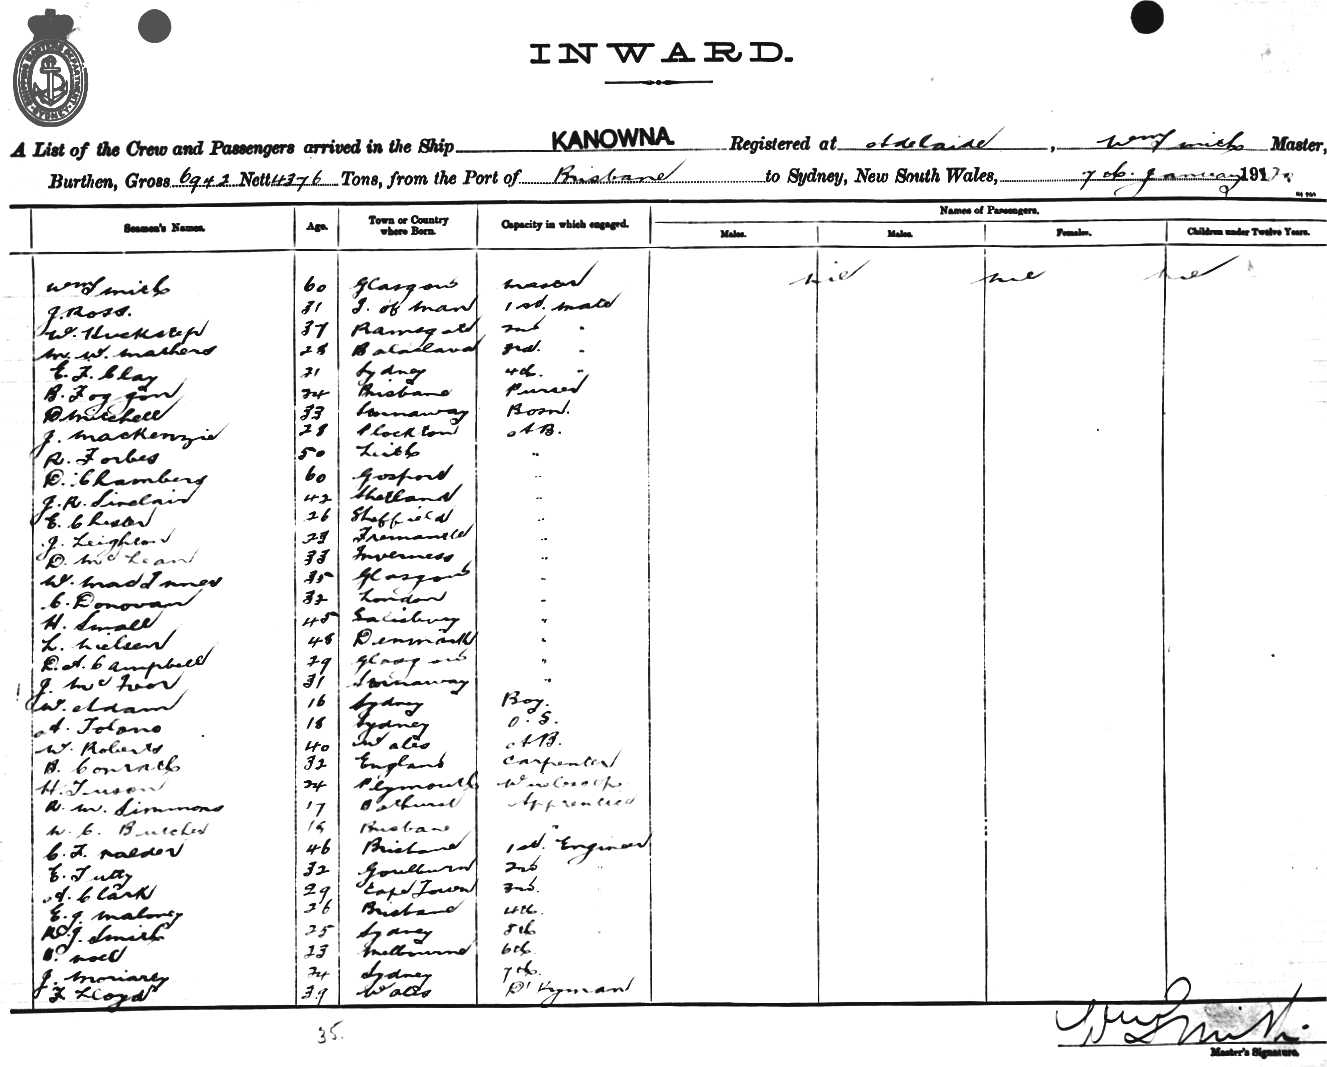 INWARD.
A List of the Crew and Passengers arrived in the Ship KANOWNA Registered at Adelaide, Wm Smith Master,
Burthen, Gross 6942 Nett 4376 Tons, from the Port of Brisbane to Sydney, New South Wales, 7th January 191
Seamen's Names. Age. Town or Country where Born. Capacity in which engaged. Names of Passengers.
Males. Males. Females. Children under Twelve Years.
Wm Smith 60 Glasgow Master nil nil nil
J. Ross. 31 I. of Man 1st. Mate
W. Huckstep 37 Ramsgate 2nd "
M. W. Mathers 28 Balaclava 3rd. "
E. F. Clay 21 Sydney 4th. "
B. Foggon 24 Brisbane Purser
D Mitchell 33 Stornaway Bosn.
J. MacKenzie 28 Plockton AB.
R. Forbes 50 Leith "
D. Chambers 60 Gosford "
J. R. Sinclair 42 Shetland "
E. Chester 26 Sheffield "
J. Leighton 29 Fremantle "
D. McLean 33 Inverness "
W. MacInnes 35 Glasgow "
C. Donovan 32 London "
H. Small 45 Salisbury "
L. Nielsen 48 Denmark "
D. A. Campbell 29 Glasgow "
J. McIvor 31 Stornaway "
W. Adam 16 Sydney Boy.
A. Tolano 18 Sydney O. S.
W. Roberts 40 Wales AB.
B. Conrath 32 England Carpenter
H. Tuson 24 Plymouth
R. M. Simmons 17 Bathurst Apprentice
W. C. Butcher 19 Brisbane "
C. F. 46 Brisbane 1st. Engineer
E. Tutty 32 Goulburn 2nd "
A. Clark 29 Cape Town 3rd.
E. J. Maloney 26 Brisbane 4th.
R. J. Smith 25 Sydney 5th
Noel 23 Melbourne 6th.
J. Moriarty 24 Sydney 7th.
F. Lloyd 39 Wales Dkyman
35.
Wm Smith
Master's Signature.